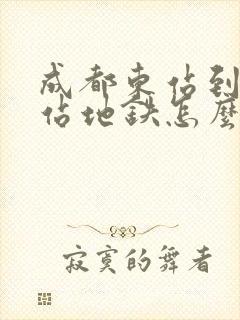 成都东站到
站地铁怎麽
寂寞的舞者